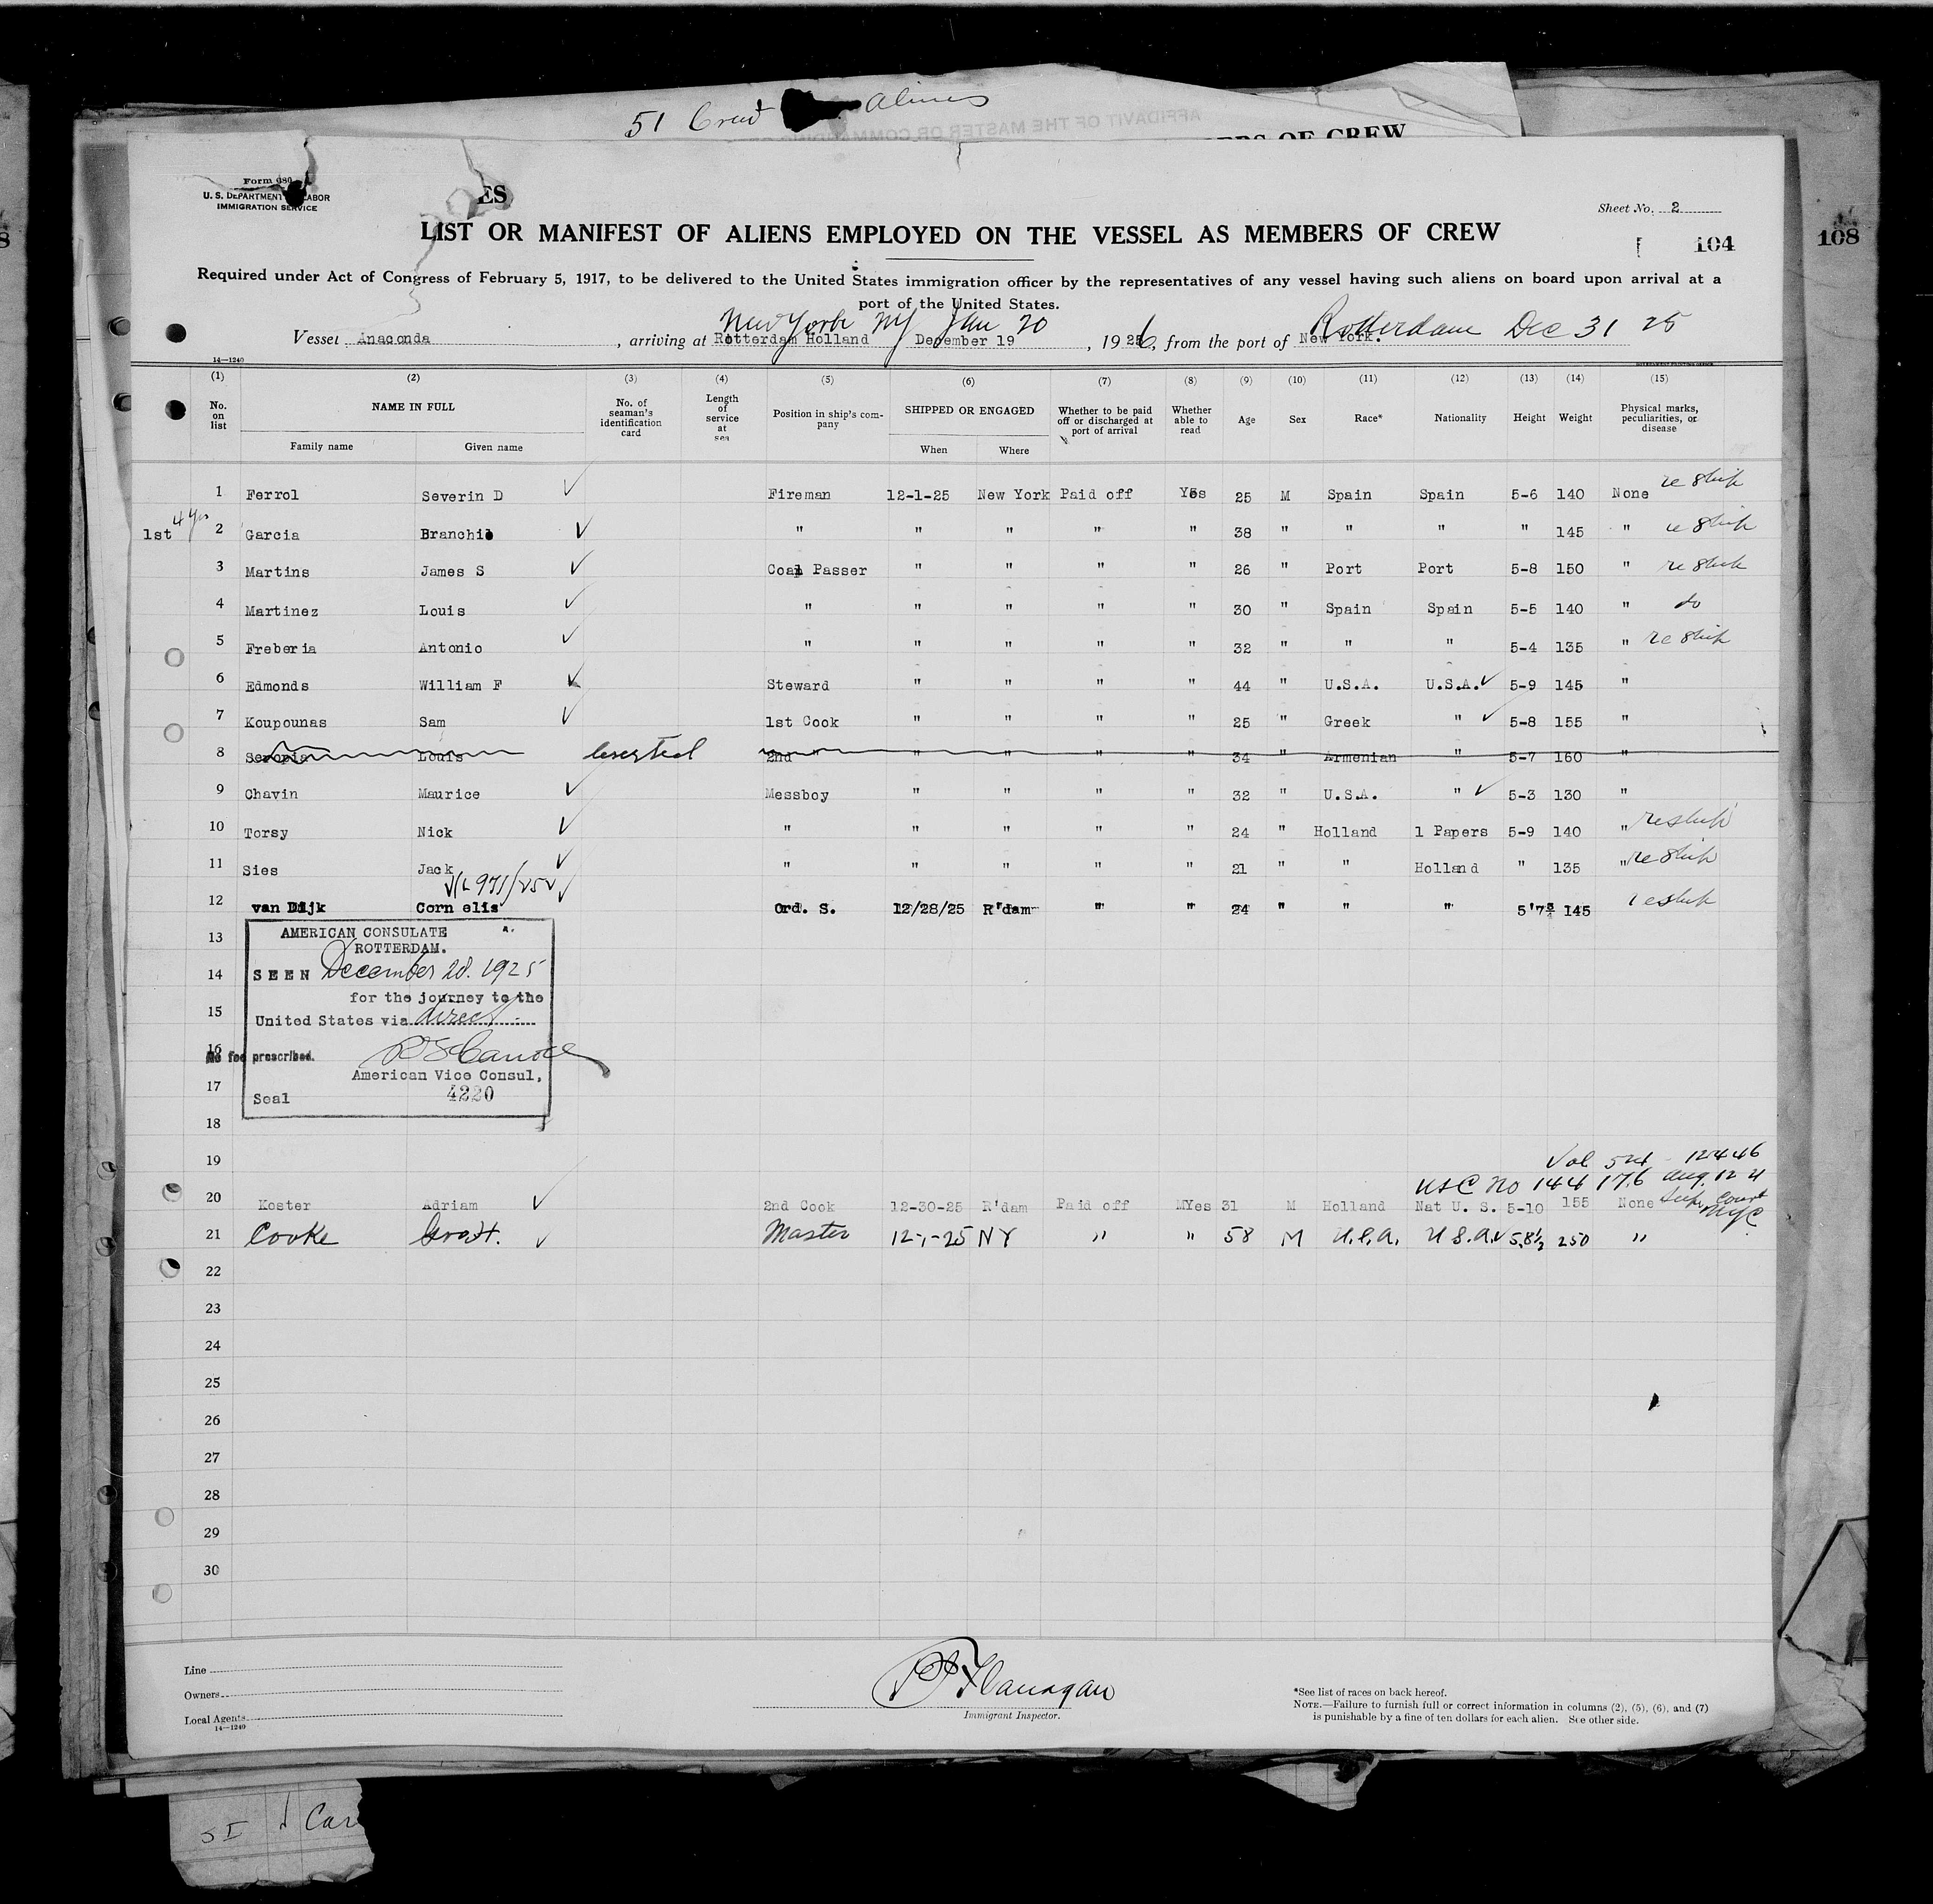 51 Crew Aliens
AFFIDAVIT OF THE MASTER OR COMMANDING
OF CREW
Form 680
U. S. DEPARTMENT LABOR
IMMIGRATION SERVICE
ES
Sheet No. 2
LIST OR MANIFEST OF ALIENS EMPLOYED ON THE VESSEL AS MEMBERS OF CREW
104
108
Required under Act of Congress of February 5, 1917, to be delivered to the United States immigration officer by the representatives of any vessel having such aliens on board upon arrival at a
port of the United States.
New York NY Jan 20 Rotterdam Dec 31 25
Vessel Anaconda, arriving at Rotterdam Holland December 19, 1926, from the port of New York.
14—1240
(1) (2) (3) (4) (5) (6) (7) (8) (9) (10) (11) (12) (13) (14) (15)
No. on list NAME IN FULL Family name Given name No. of seaman's identification card Length of service at sea Position in ship's company SHIPPED OR ENGAGED When Where Whether to be paid off or discharged at port of arrival Whether able to read Age Sex Race* Nationality Height Weight Physical marks, peculiarities, or disease
1 Ferrol Severin D ✓ Fireman 12-1-25 New York Paid off Yes 25 M Spain Spain 5-6 140 None reship
1st 4 yrs 2 Garcia Branchilo ✓ " " " " " 38 " " " " 145 " reship
3 Martins James S ✓ Coal Passer " " " " 26 " Port Port 5-8 150 " reship
4 Martinez Louis ✓ " " " " " 30 " Spain Spain 5-5 140 " do
5 Freberia Antonio ✓ " " " " " 32 " " " 5-4 135 " reship
6 Edmonds William F ✓ Steward " " " " 44 " U.S.A. U.S.A. ✓ 5-9 145 "
7 Koupounas Sam ✓ 1st Cook " " " " 25 " Greek " ✓ 5-8 155 "
8 Seropia Louis Deserted 2nd " " " " " 34 " Armenian " 5-7 160 "
9 Chavin Maurice ✓ Messboy " " " " 32 " U.S.A. " ✓ 5-3 130 "
10 Torsy Nick ✓ " " " " " 24 " Holland 1 Papers 5-9 140 " reship
11 Sies Jack ✓ " " " " " 21 " " Holland " 135 " reship
12 van Dijk Cornelis ✓ Ord. S. 12/28/25 R'dam " " 24 " " " 5'7 145 reship
13
AMERICAN CONSULATE
ROTTERDAM.
14
SEEN December 28. 1925
for the journey to the
15
United States via direct
16
No fee prescribed.
American Vice Consul,
17
Seal 4220
18
19
Vol 524 12446
USC No 144176 Aug. 12 21
Supr Court NYC
20 Koster Adriam ✓ 2nd Cook 12-30-25 R'dam Paid off MYes 31 M Holland Nat U. S. 5-10 155 None
21 Cooke Geo H. ✓ Master 12-1-25 NY " " 58 M U.S.A. U.S.A. ✓ 5.8½ 250 "
22
23
24
25
26
27
28
29
30
Line
Owners
Local Agents
14—1240
Flanagan
Immigrant Inspector.
*See list of races on back hereof.
NOTE.—Failure to furnish full or correct information in columns (2), (5), (6), and (7)
is punishable by a fine of ten dollars for each alien. See other side.
SI Car